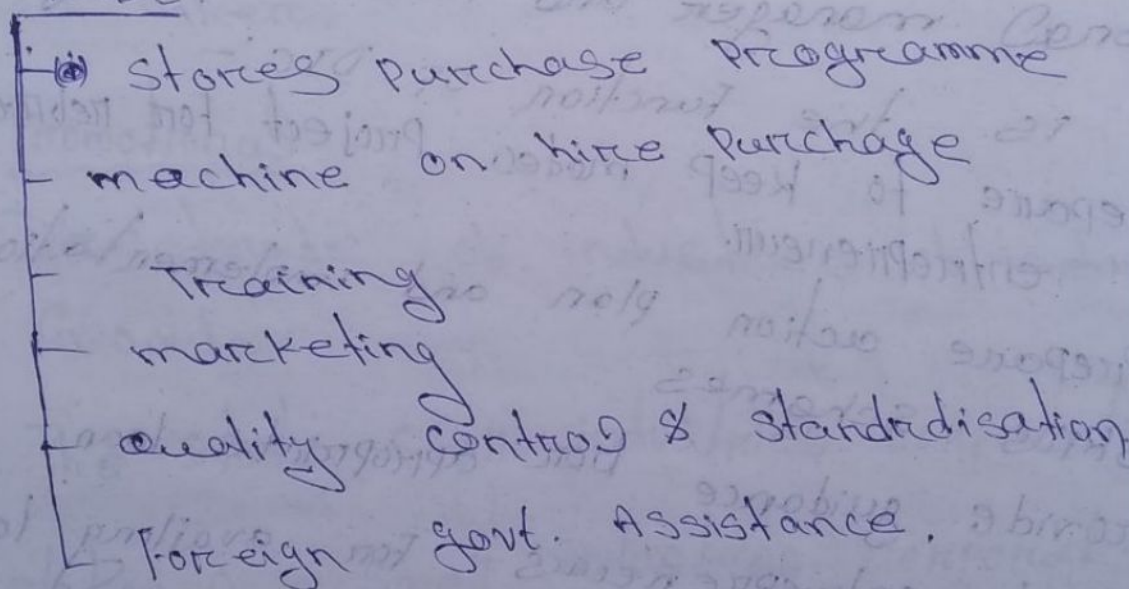 Stores Purchase Programme
machine on hire Purchage
Training
marketing
quality control & standrdisation
Foreign govt. Assistance.